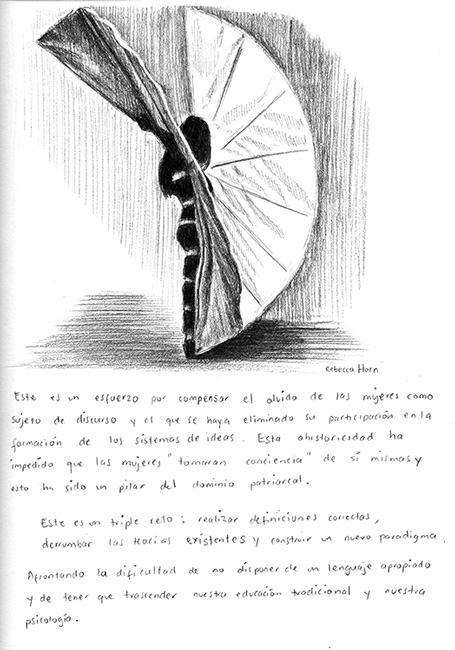 Rebecca Horn
Este es un esfuerzo por compensar el olvido de las mujeres como
sujeto de discurso y el que se haya eliminado su participación en la
formación de los sistemas de ideas. Esta ahistoricidad ha
impedido que las mujeres "tomaran conciencia" de sí mismas y
esto ha sido un pilar del dominio patriarcal.
Este es un triple reto: realizar definiciones correctas,
derrumbar las teorías existentes y construir un nuevo paradigma.
Afrontando la dificultad de no disponer de un lenguaje apropiado
y de tener que trascender nuestra educación tradicional y nuestra
psicología.